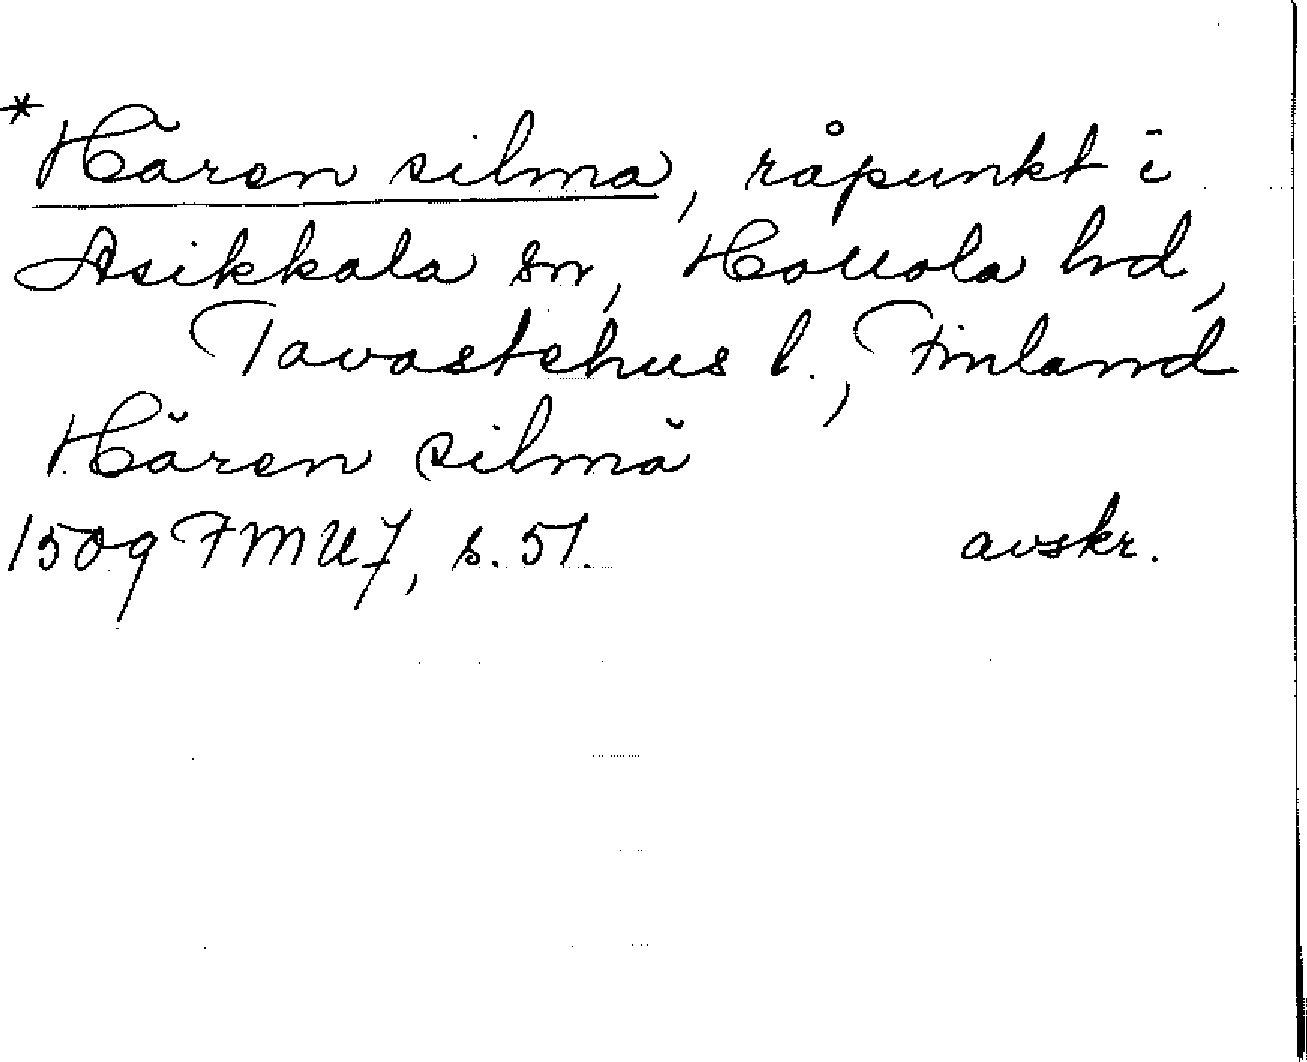 *Hären silma, råpunkt i
Asikkala sn, Hollola hd,
Tavastehus l., Finland
Hären silmä
1509 FMU7, s. 51. avskr.